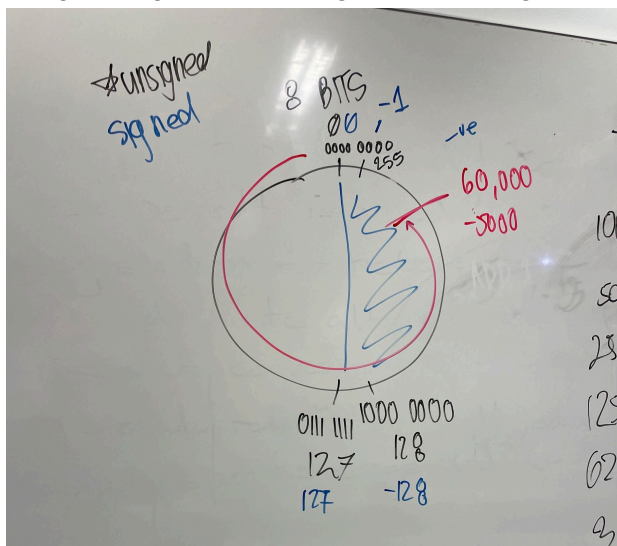 unsigned
signed
8 BITS
00, -1
-ve
0000 0000
255
60,000
-5000
0111 1111
1000 0000
127
128
127
-128
10
50
25
125
62